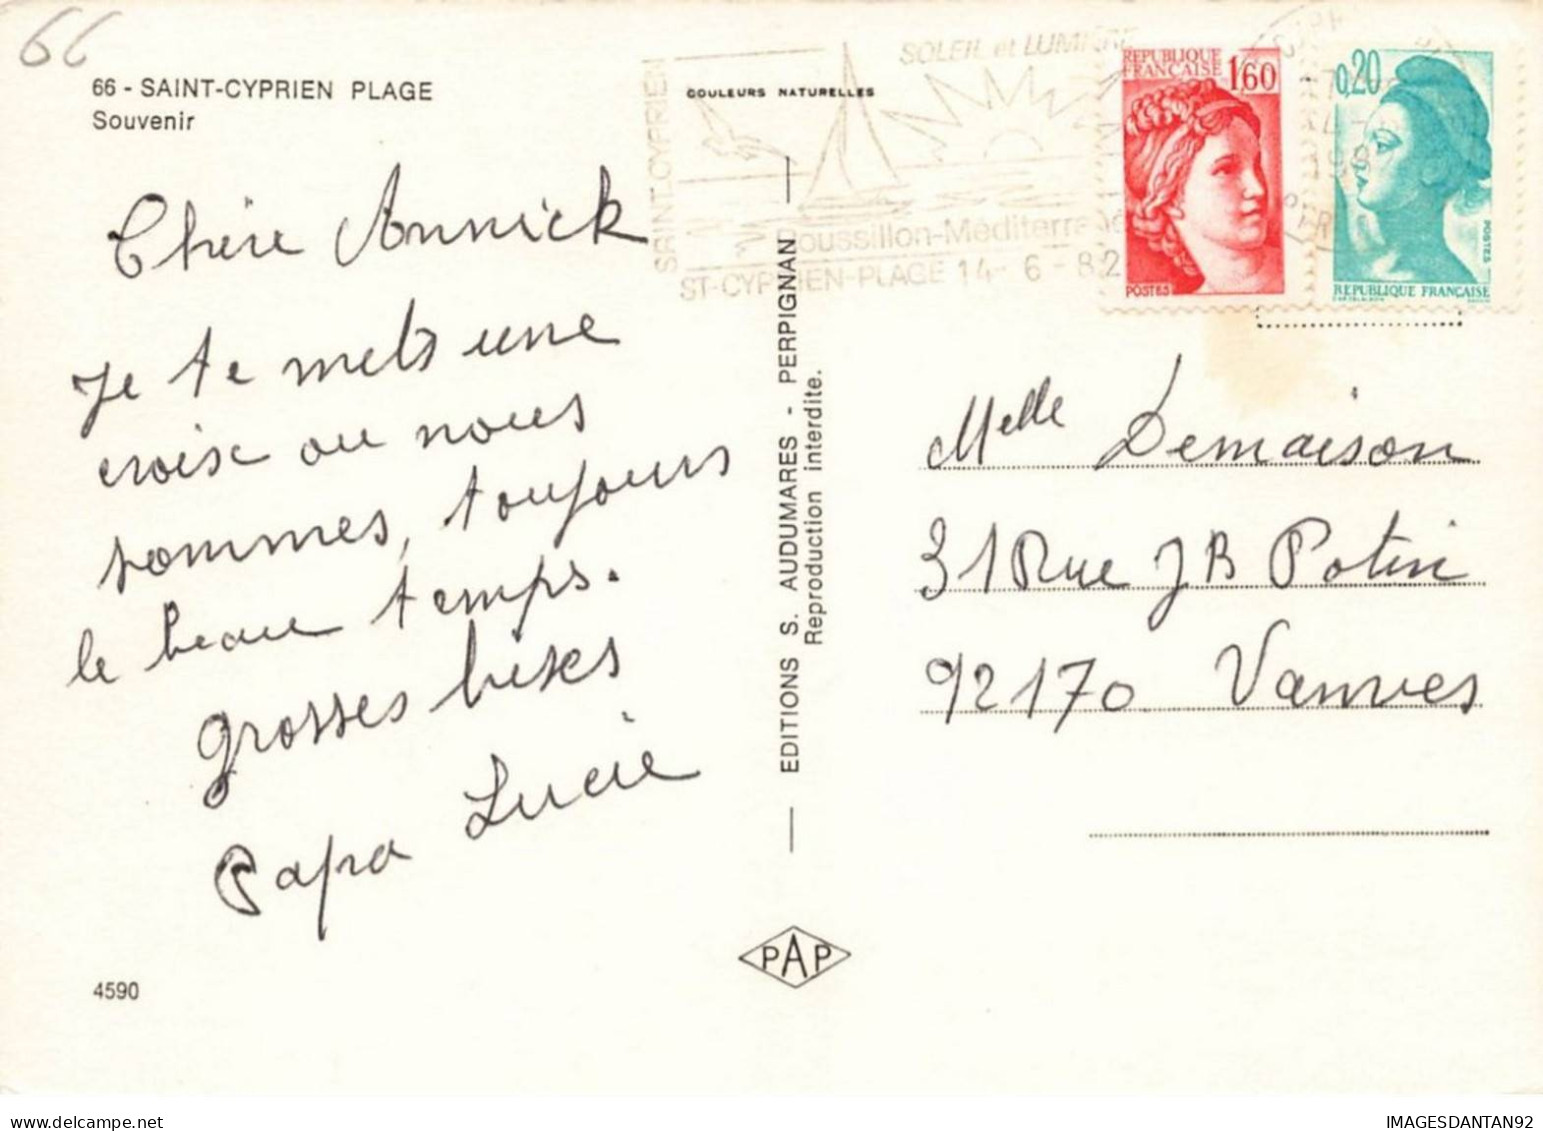 66
66 - SAINT-CYPRIEN PLAGE
Souvenir
COULEURS NATURELLES
SOLEIL et LUMIÈRE
SAINT.CYPRIEN
Roussillon-Méditerrané
ST-CYPRIEN-PLAGE 14- 6 - 82
REPUBLIQUE
FRANCAISE
1,60
POSTES
0,20
POSTES
REPUBLIQUE FRANÇAISE
Chère Annick
Je te mets une
croix ou nous
sommes, toujours
le beau temps.
grosses bises
Papa Lucie
EDITIONS S. AUDUMARES - PERPIGNAN
Reproduction interdite.
Melle Demaison
31 Rue JB Potin
92170 Vanves
PAP
4590
IMAGESDANTAN92